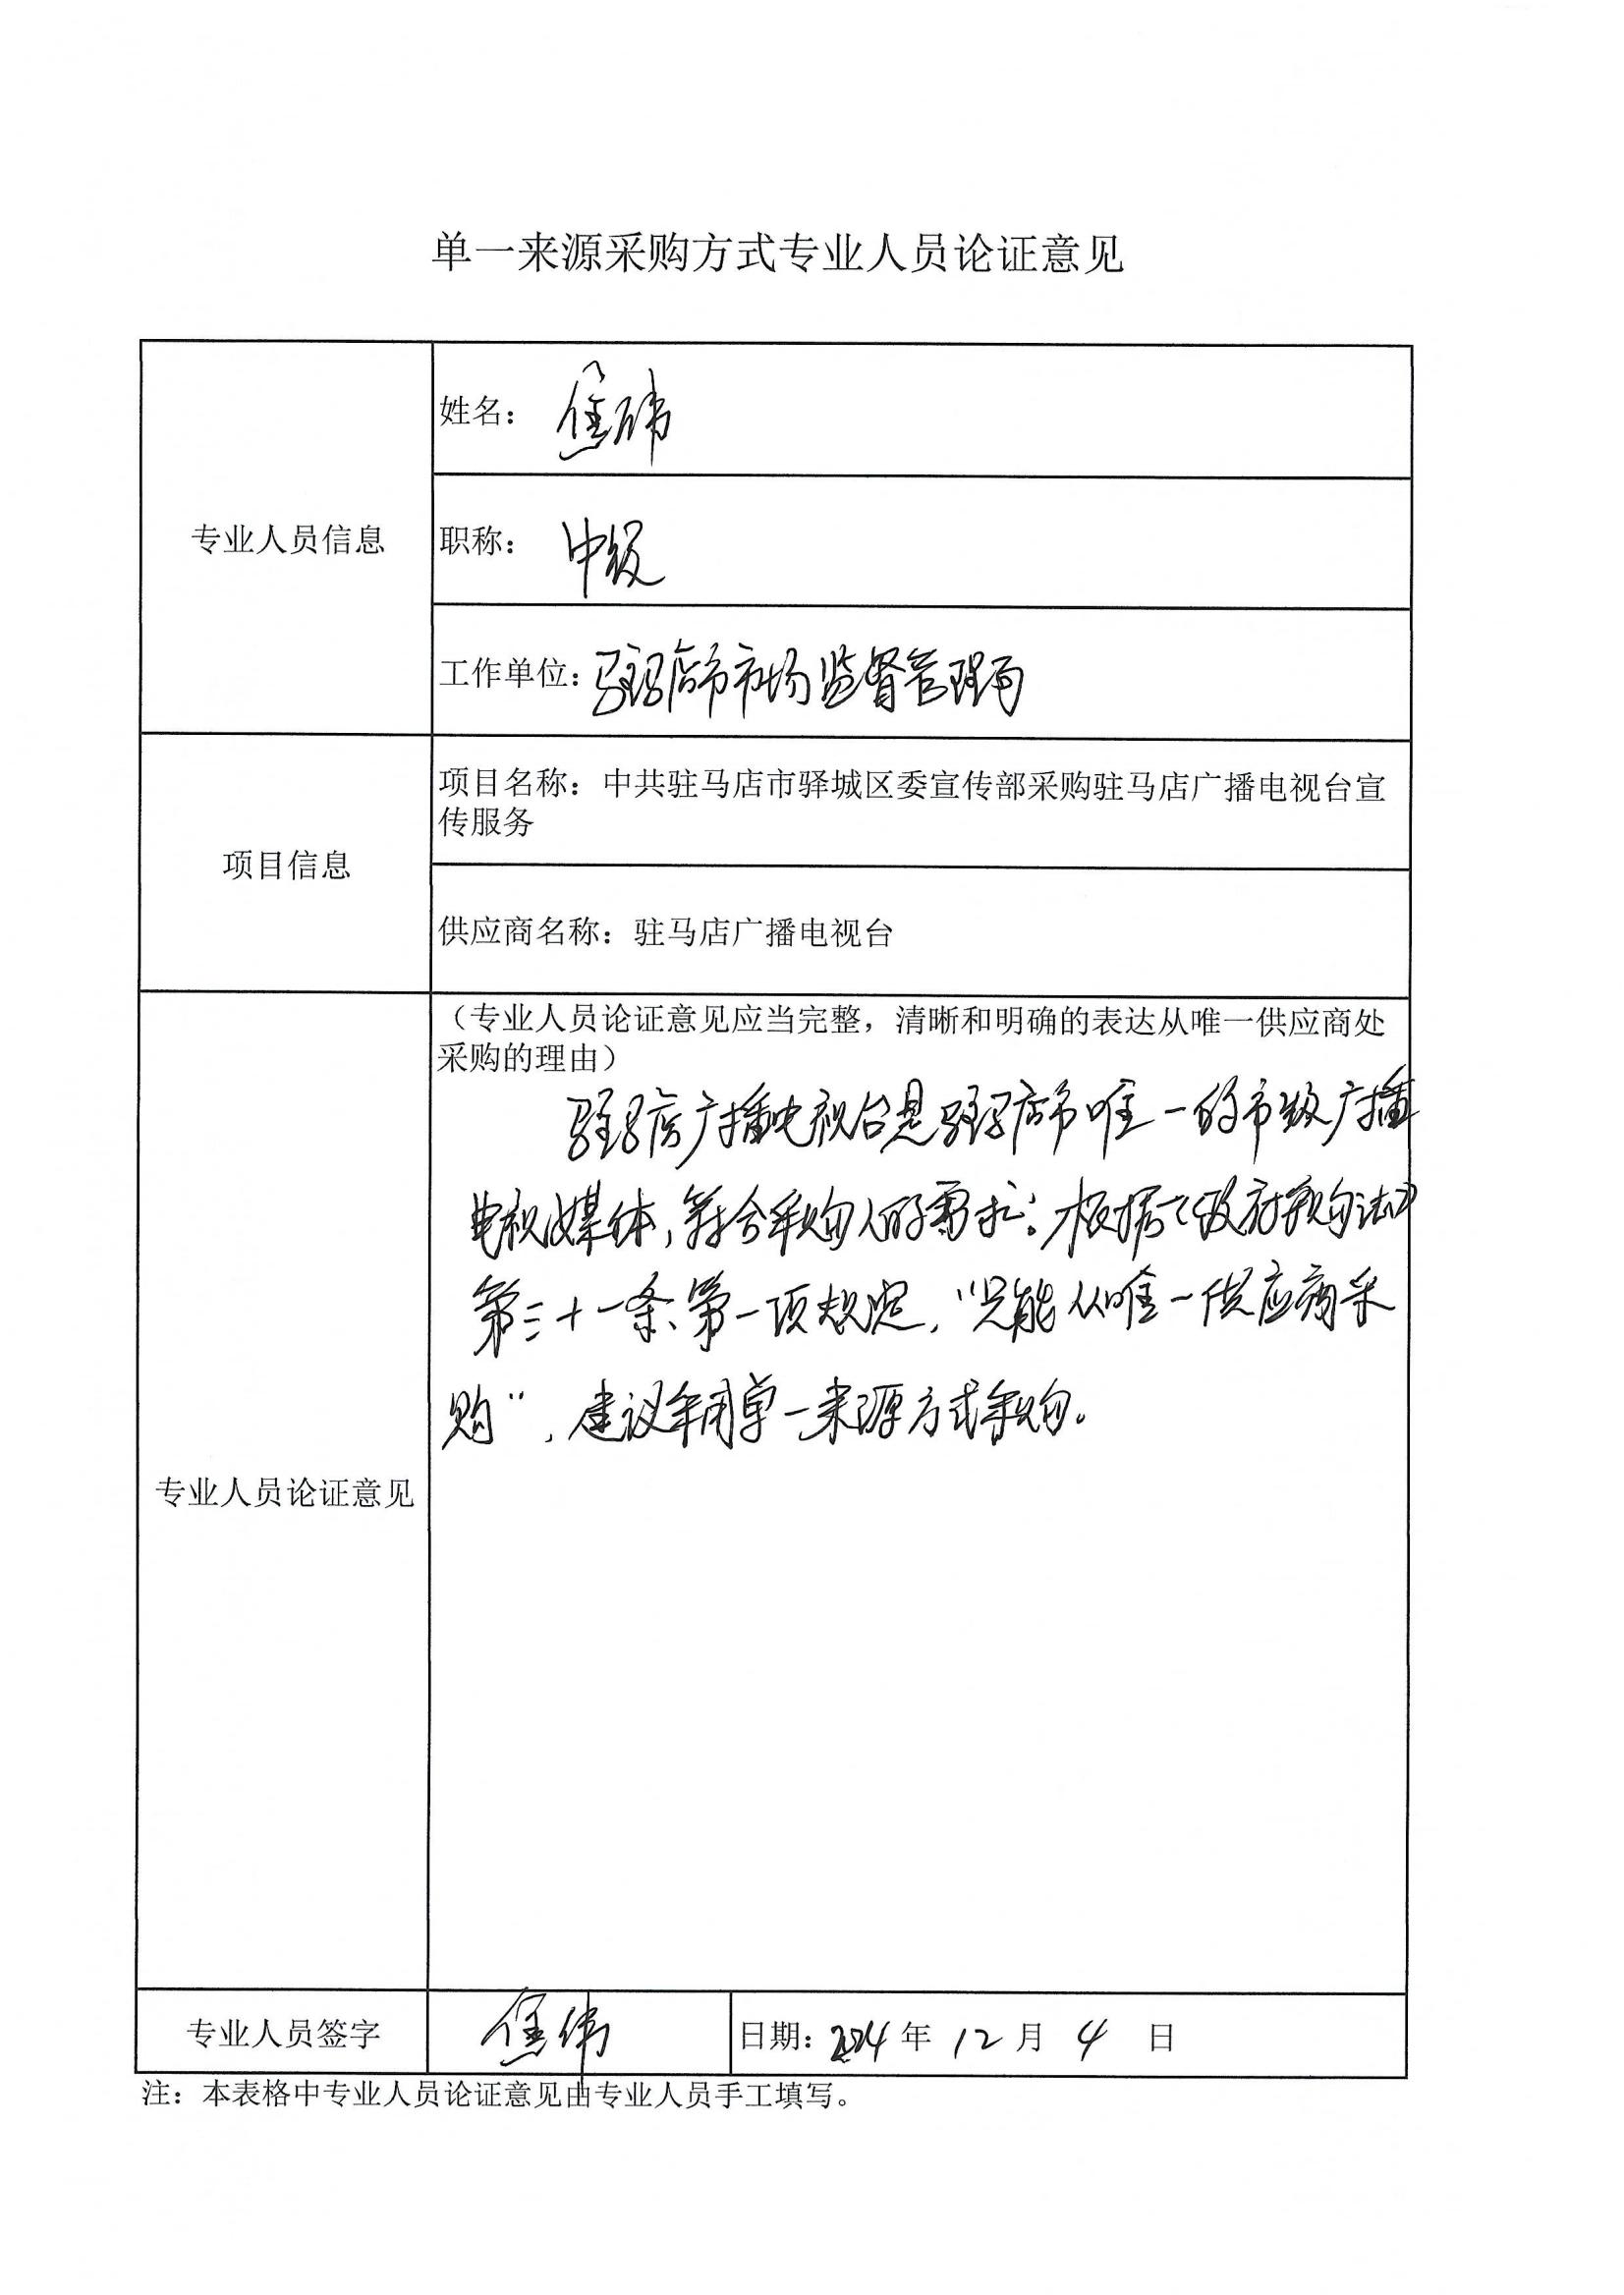 单一来源采购方式专业人员论证意见
专业人员信息
姓名：焦伟
职称：中级
工作单位：驻马店市市场监督管理局
项目信息
项目名称：中共驻马店市驿城区委宣传部采购驻马店广播电视台宣
传服务
供应商名称：驻马店广播电视台
专业人员论证意见
（专业人员论证意见应当完整，清晰和明确的表达从唯一供应商处
采购的理由）
驻马店广播电视台是驻马店市唯一的市级广播
电视媒体，符合采购人的需求；根据《政府采购法》
第三十一条第一项规定，“只能从唯一供应商采
购”，建议采用单一来源方式采购。
专业人员签字 焦伟 日期：2024年12月4日
注：本表格中专业人员论证意见由专业人员手工填写。